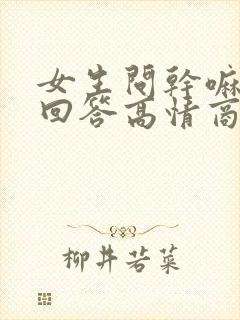 女生問幹嘛
回答高情商
柳井若菜